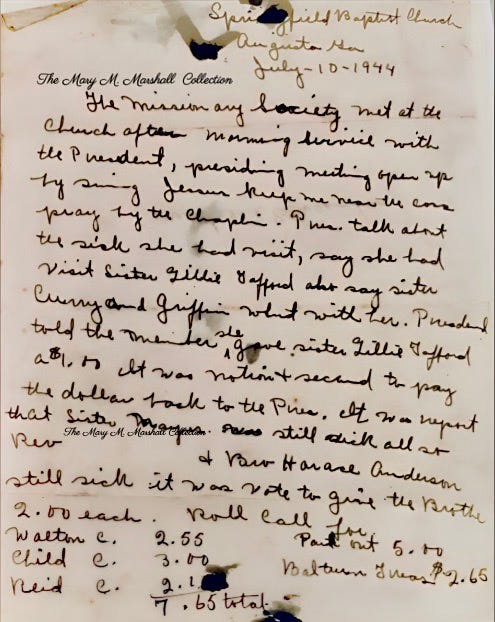 Springfield Baptist Church
Augusta Ga
July-10-1944
The Mary M. Marshall Collection
The Missionary Society met at the
Church after morning service with
the President, presiding meeting open up
by sining Jesus Keep me near the cors
pray by the Chaplin. Pres. talk about
the sick she had visit, say she had
visit Sister Lillie Tafford also say sister
Curry and Griffin whit with her. President
told the member she gave sister Lillie Tafford
a $1.00 It was notion & second to pay
the dollar back to the Pres. It was report
that Sister still sick all so
The Mary M. Marshall Collection
Rev & Bro Harase Anderson
still sick it was vote to give the Brothe
2.00 each. Roll Call for
Walton C. 2.55 Paid out 5.00
Child C. 3.00 Balance Treas $2.65
Reid C. 2.1
7.65 total